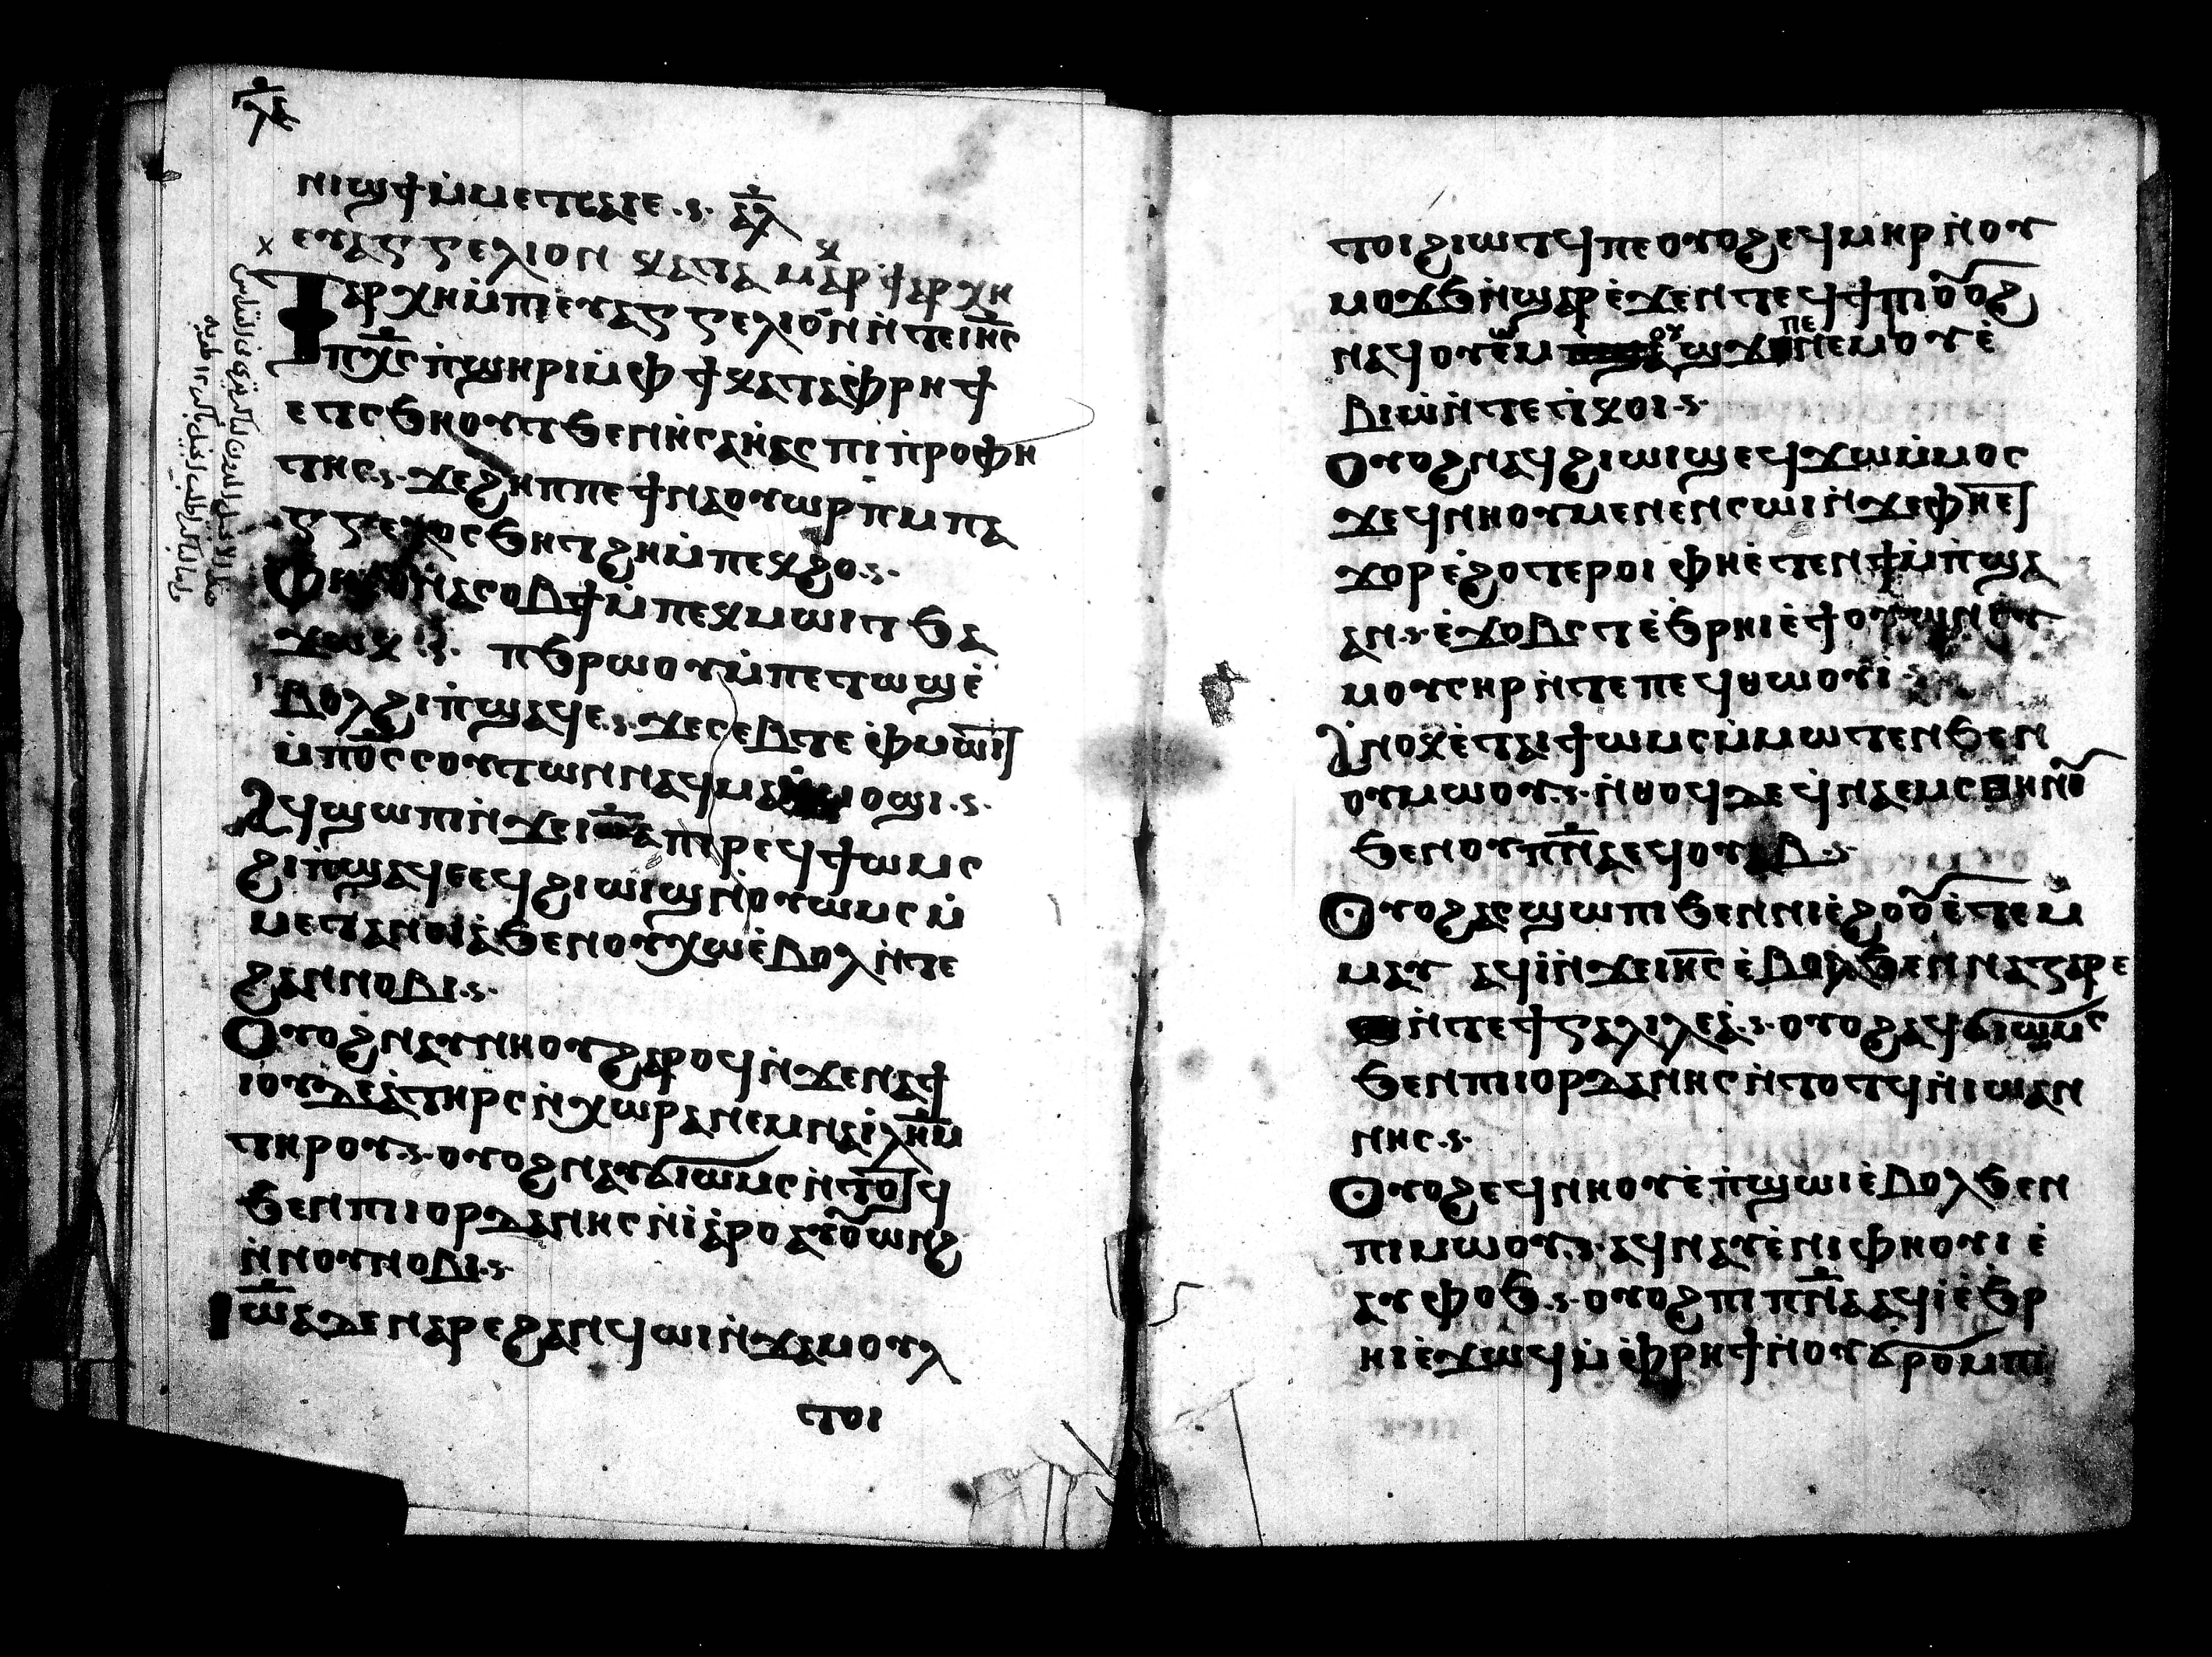 ⲗⲉ
ⲛⲓϣϯ ⲙ̇ⲙⲉⲧⲥⲁⲓⲉ ⲁⲗ
ⲉⲩⲁⲅⲅⲉⲗⲓⲟⲛ ⲕⲁⲧⲁ ⲙⲁⲣⲕ ϯⲁⲣⲭⲏ
Ϯⲁⲣⲭⲏ ⲙ̇ⲡⲓⲉⲩⲁⲅⲅⲉⲗⲓⲟⲛ ⲛ̇ⲧⲉ ⲓⲏ̅ⲥ
ⲡⲭ̅ⲥ ⲡ̇ϣⲏⲣⲓ ⲙ̇ⲫϯ ⲕⲁⲧⲁ ⲫ̇ⲣⲏϯ
ⲉⲧⲥϧⲏⲟⲩⲧ ϧⲉⲛ ⲏ̇ⲥⲁⲏ̇ⲁⲥ ⲡⲓⲡ̇ⲣⲟⲫⲏ
ⲧⲏⲥ ϫⲉ ϩⲏⲡⲡⲉ ϯⲛⲁⲟⲩⲱⲣⲡ ⲙⲡⲁ
ⲅⲅⲉⲗⲟⲥ ϧⲏⲧ ϩⲏ ⲙ̇ⲡⲉⲕϩⲟ
ⲫⲏⲉⲑⲛⲁⲥⲟⲃϯ ⲙ̇ⲡⲉⲕⲙⲱⲓⲧ ϧⲁ
ϫⲱⲕ ⲡϧⲣⲱⲟⲩ ⲙ̇ⲡⲉⲧⲱϣ ⲉ̇
ⲃⲟⲗ ϩⲓ ⲡ̇ϣⲁϥⲉ ϫⲉ ⲥⲉⲃⲧⲉ ⲫ̇ⲙⲱⲓⲧ
ⲙ̇ⲡⲟ̅ⲥ ⲥⲟⲩⲧⲱⲛ ⲛⲁϥⲙⲁⲙ̇ⲙⲟϣⲓ
Ⲁϥϣⲱⲡⲓ ⲛ̇ϫⲉ ⲓⲱ̅ⲁ ⲡⲓⲣⲉϥϯⲱⲙⲥ
ϩⲓ ⲡ̇ϣⲁϥⲉ ⲉϥϩⲓⲱⲓϣ ⲛ̇ⲟⲩⲱⲙⲥ ⲙ̇
ⲙⲉⲧⲁⲛⲟⲓⲁ̇ ϧⲉⲛ ⲟⲩⲭⲱ ⲉ̇ⲃⲟⲗ ⲛ̇ⲧⲉ
ϩⲁⲛⲛⲟⲃⲓ
Ⲟⲩⲟϩ ⲛⲁⲩⲛⲏⲟⲩ ϩⲁⲣⲟϥ ⲛ̇ϫⲉ ⲛⲁϯ
ⲓⲟⲩⲇⲉⲁ̇ ⲧⲏⲣⲥ ⲛ̇ⲭⲱⲣⲁ ⲛⲉⲙ ⲛⲁⲓ̇ⲗⲏ̅ⲙ
ⲧⲏⲣⲟⲩ ⲟⲩⲟϩ ⲛⲁⲩϭⲓⲱⲙⲥ ⲛ̇ⲧⲟⲧϥ
ϧⲉⲛ ⲡⲓⲓⲟⲣⲇⲁⲛⲏⲥ ⲛ̇ⲓⲁⲣⲟ ⲁⲩⲟⲩⲱⲛϩ
ⲛ̇ⲛⲟⲩⲛⲟⲃⲓ
Ⲓⲱ̅ⲁ ⲇⲉ ⲛⲁⲣⲉ ϩⲁⲛϥⲱⲓ ⲛ̇ϫⲁⲙⲟⲩⲗ
ⲧⲟⲓ
ⲧⲟⲓ ϩⲓⲱⲧϥ ⲡⲉ ⲟⲩⲟϩ ⲉϥⲙⲏⲣ ⲛ̇ⲟⲩ
ⲙⲟϫϧ ⲛ̇ϣⲁⲣ ⲉ̇ϫⲉⲛ ⲧⲉϥϯⲡⲓ ⲟⲩⲟϩ
ⲛⲁϥⲟⲩⲉ̇ⲙ ϣϫⲉ ⲡⲉ ⲛⲉⲙ ⲟⲩⲉ̇
ⲃⲓⲱ̇ ⲛ̇ⲧⲉ ⲧ̇ⲕⲟⲓ
Ⲟⲩⲟϩ ⲛⲁϥϩⲓⲱⲓϣ ⲉϥϫⲱ ⲙ̇ⲙⲟⲥ
ϫⲉ ϥⲛⲏⲟⲩ ⲙⲉⲛⲉⲛⲥⲱⲓ ⲛ̇ϫⲉ ⲫⲏⲉⲧ
ϫⲟⲣ ⲉ̇ϩⲟⲧⲉⲣⲟⲓ ⲫⲏⲉ̇ⲧⲉⲛϯⲙ̇ⲡ̇ϣⲁ
ⲁⲛ ⲉ̇ⲕⲟⲃⲥⲧ ⲉ̇ϧⲣⲏⲓ ⲉ̇ϯⲟⲩⲱ ⲛ̇ⲟⲩ
ⲙⲟⲩⲥⲏⲣ ⲛ̇ⲧⲉ ⲡⲉϥⲑⲱⲟⲩⲓ̇
Ⲁⲛⲟⲕ ⲉ̇ⲧⲁⲓϯⲱⲙⲥ ⲙ̇ⲙⲱⲧⲉⲛ ϧⲉⲛ
ⲟⲩⲙⲱⲟⲩ ⲛ̇ⲑⲟϥ ⲇⲉ ϥ̇ⲛⲁⲉⲙⲥ ⲑⲏⲛⲟⲩ
ϧⲉⲛ ⲟⲩⲡⲛ̅ⲁ ⲉϥⲟⲩⲁⲃ
Ⲟⲩⲟϩ ⲁⲥϣⲱⲡⲓ ϧⲉⲛ ⲛⲓⲉ̇ϩⲟⲟⲩ ⲉ̇ⲧⲉⲙ
ⲙⲁⲩ ⲁϥⲓ̇ ⲛ̇ϫⲉ ⲓⲏ̅ⲥ ⲉ̇ⲃⲟⲗ ϧⲉⲛ ⲛⲁⲍⲁⲣⲉ
ⲛ̇ⲧⲉ ϯⲅⲁⲗⲓⲗⲉⲁ̇ ⲟⲩⲟϩ ⲁϥϭⲓⲱⲙⲥ
ϧⲉⲛ ⲡⲓⲓⲟⲣⲇⲁⲛⲏⲥ ⲛ̇ⲧⲟⲧϥ ⲛ̇ⲓⲱⲁⲛ
ⲛⲏⲥ
Ⲟⲩⲟϩ ⲉϥⲛⲏⲟⲩ ⲉ̇ⲡ̇ϣⲱⲓ ⲉ̇ⲃⲟⲗ ϧⲉⲛ
ⲡⲓⲙⲱⲟⲩ ⲁϥⲛⲁⲩ ⲉ̇ⲛⲓⲫⲏⲟⲩⲓ ⲉ̇
ⲁⲩⲫⲟϧ ⲟⲩⲟϩ ⲡⲓⲡⲛ̅ⲁ ⲁϥⲓ̇ ⲉ̇ϧⲣ
ⲏⲓ ⲉ̇ϫⲱϥ ⲙ̇ⲫ̇ⲣⲏϯ ⲛ̇ⲟⲩϭⲣⲟⲙⲡⲓ